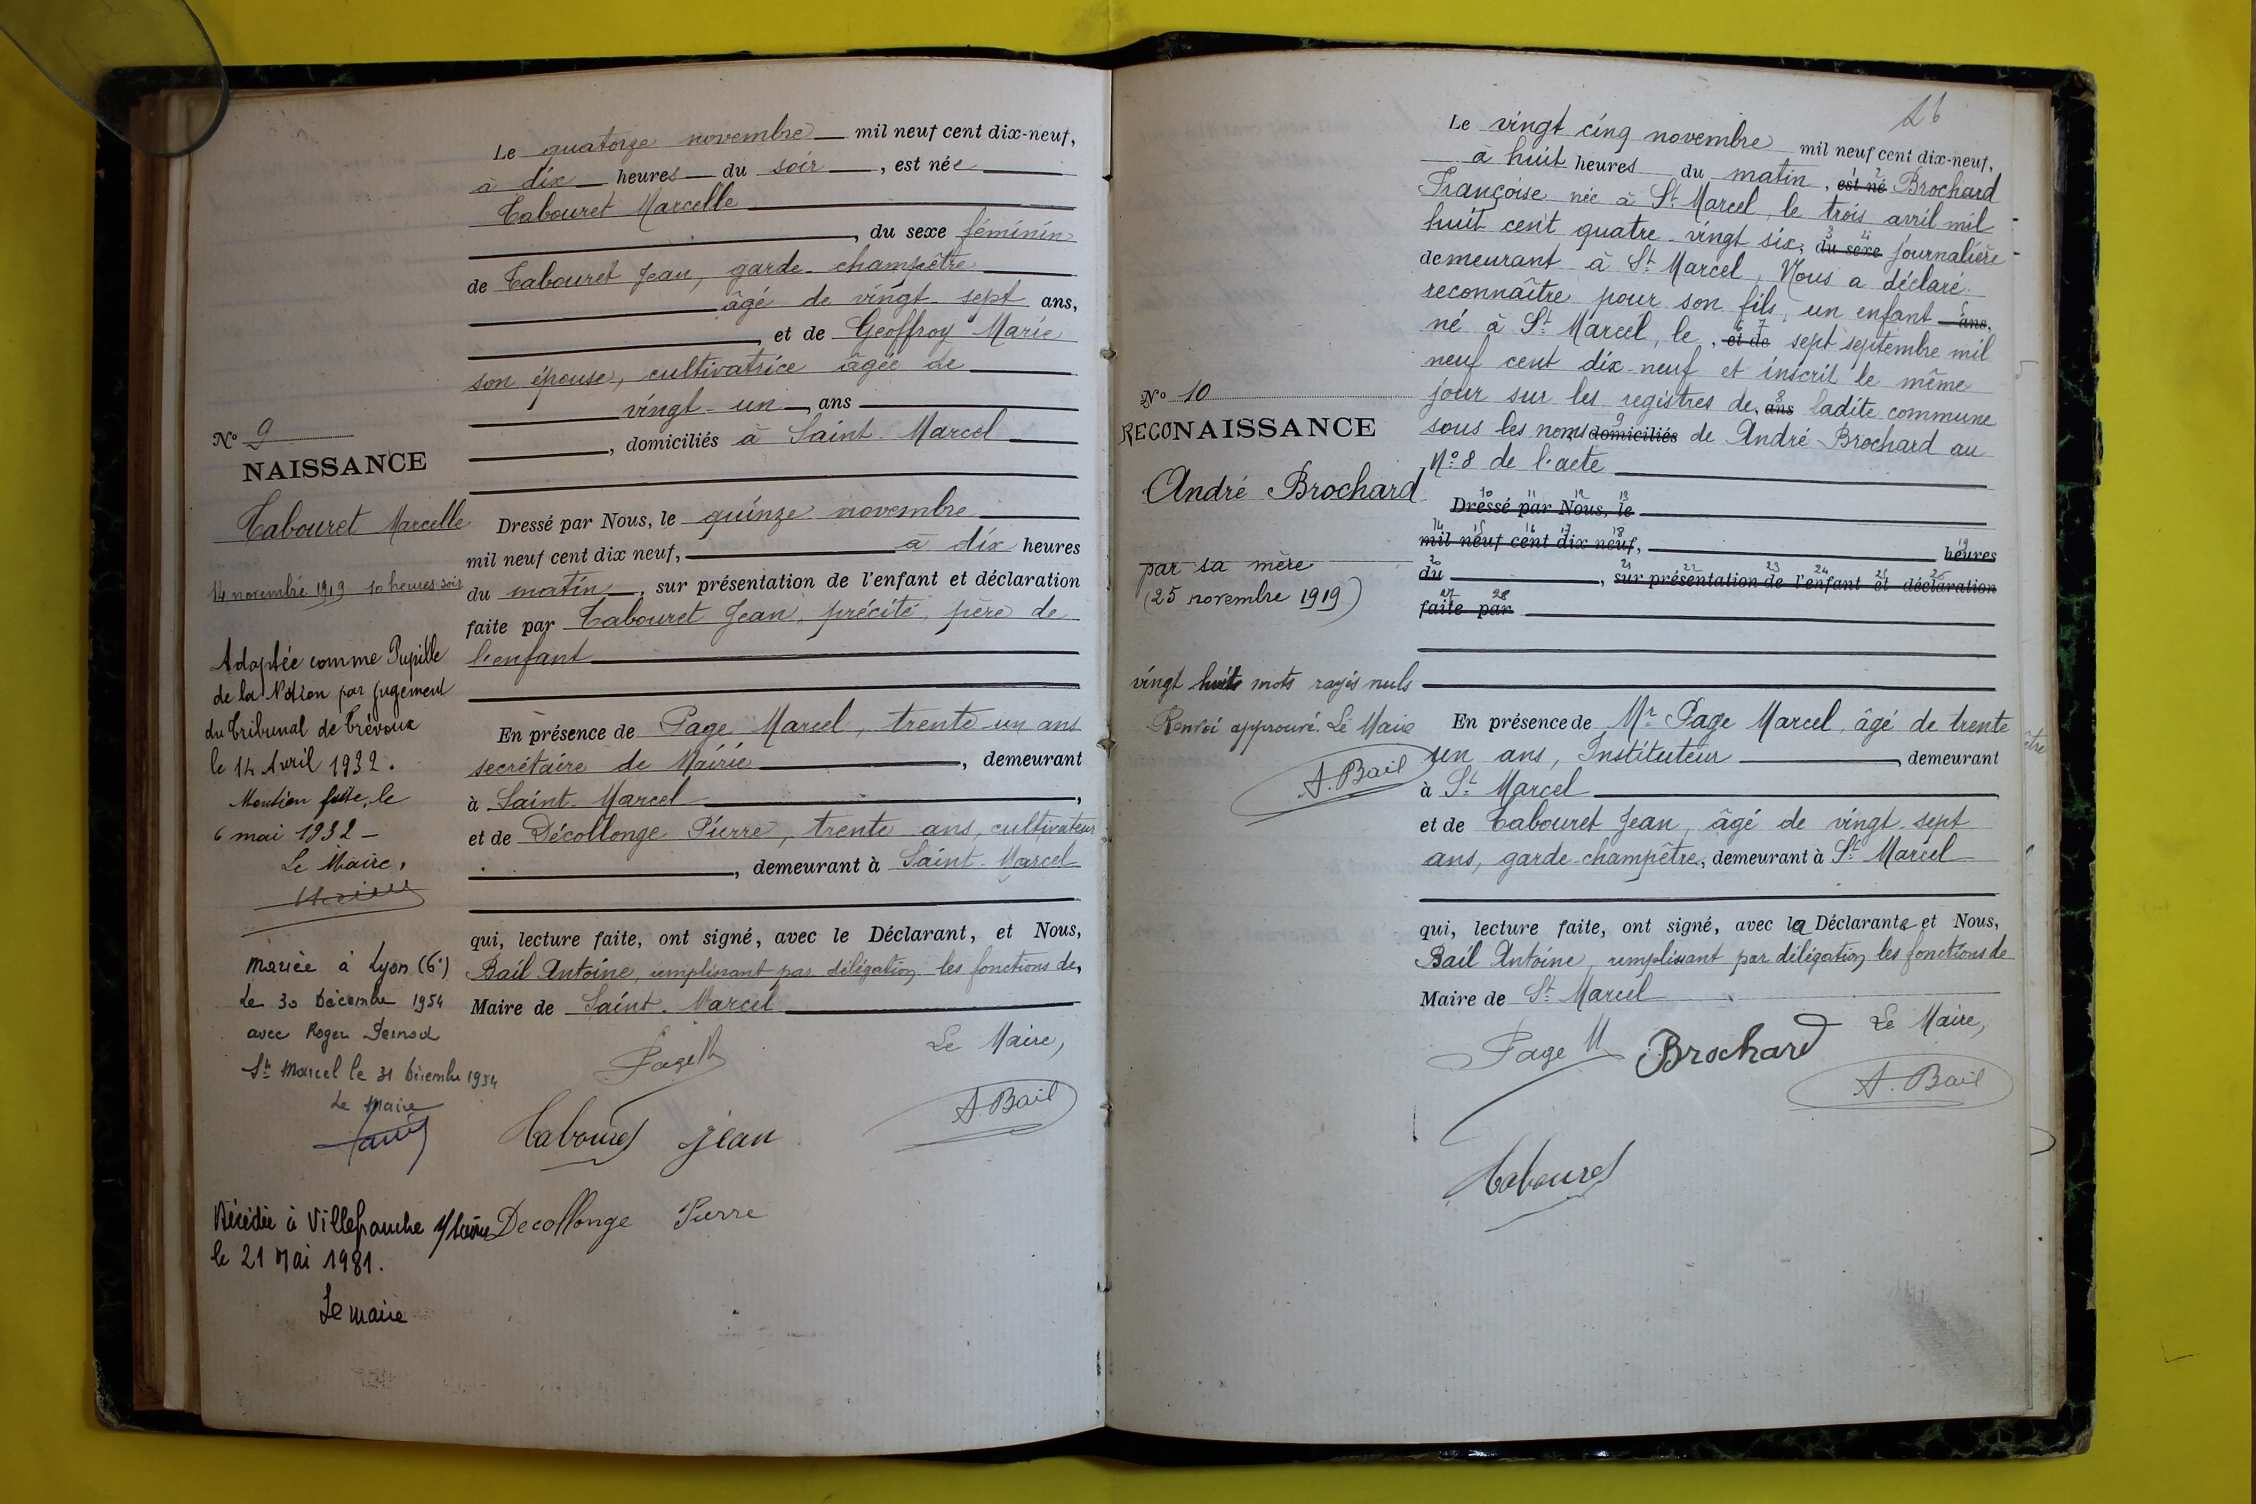 Le quatorze novembre mil neuf cent dix-neuf,
à dix heures du soir, est née
Tabouret Marcelle
, du sexe féminin
de Tabouret Jean, garde-champêtre
âgé de vingt-sept ans,
et de Geoffroy Marie
son épouse, cultivatrice âgée de
vingt-un, ans
, domiciliés à Saint-Marcel
Nº 9
NAISSANCE
Tabouret Marcelle
14 novembre 1919 10 heures soir
Dressé par Nous, le quinze novembre
mil neuf cent dix neuf, à dix heures
du matin, sur présentation de l'enfant et déclaration
faite par Tabouret Jean, précité, père de
l'enfant
Adoptée comme Pupille
de la Nation par jugement
du Tribunal de Trévoux
le 14 Avril 1932.
Mention faite, le
6 mai 1932 -
Le Maire,
En présence de Page Marcel, trente-un ans
secrétaire de Mairie, demeurant
à Saint-Marcel,
et de Décollonge Pierre, trente ans, cultivateur
, demeurant à Saint-Marcel
qui, lecture faite, ont signé, avec le Déclarant, et Nous,
Bail Antoine, remplissant par délégation les fonctions de,
Maire de Saint-Marcel
Mariée à Lyon (6e)
le 30 Décembre 1954
avec Roger
St Marcel le 31 Décembre 1954
Le Maire
Page M
Le Maire,
A. Bail
Tabouret Jean
Decollonge Pierre
Décédée à Villefranche s/Saône
le 21 Mai 1981.
Le maire
26
Le vingt cinq novembre mil neuf cent dix-neuf,
à huit heures du matin, est né Brochard
Françoise née à St Marcel, le trois avril mil
huit cent quatre-vingt six, du sexe journalière
demeurant à St Marcel, Nous a déclaré
reconnaître pour son fils, un enfant ans,
né à St Marcel, le, et de sept septembre mil
neuf cent dix-neuf et inscrit le même
jour sur les registres de, ans ladite commune
sous les noms domiciliés de André Brochard au
Nº 8 de l'acte
Nº 10
RECONAISSANCE
André Brochard
par sa mère
(25 novembre 1919)
Dressé par Nous, le
mil neuf cent dix neuf, heures
du, sur présentation de l'enfant et déclaration
faite par
vingt huit mots rayés nuls
Renvoi approuvé. Le Maire
A. Bail
En présence de Mr Page Marcel, âgé de trente
un ans, Instituteur, demeurant
à St Marcel
et de Tabouret Jean, âgé de vingt-sept
ans, garde-champêtre, demeurant à St Marcel
qui, lecture faite, ont signé, avec la Déclarante et Nous,
Bail Antoine remplissant par délégation les fonctions de
Maire de St Marcel
Page M
Brochard
Le Maire,
A. Bail
Tabouret